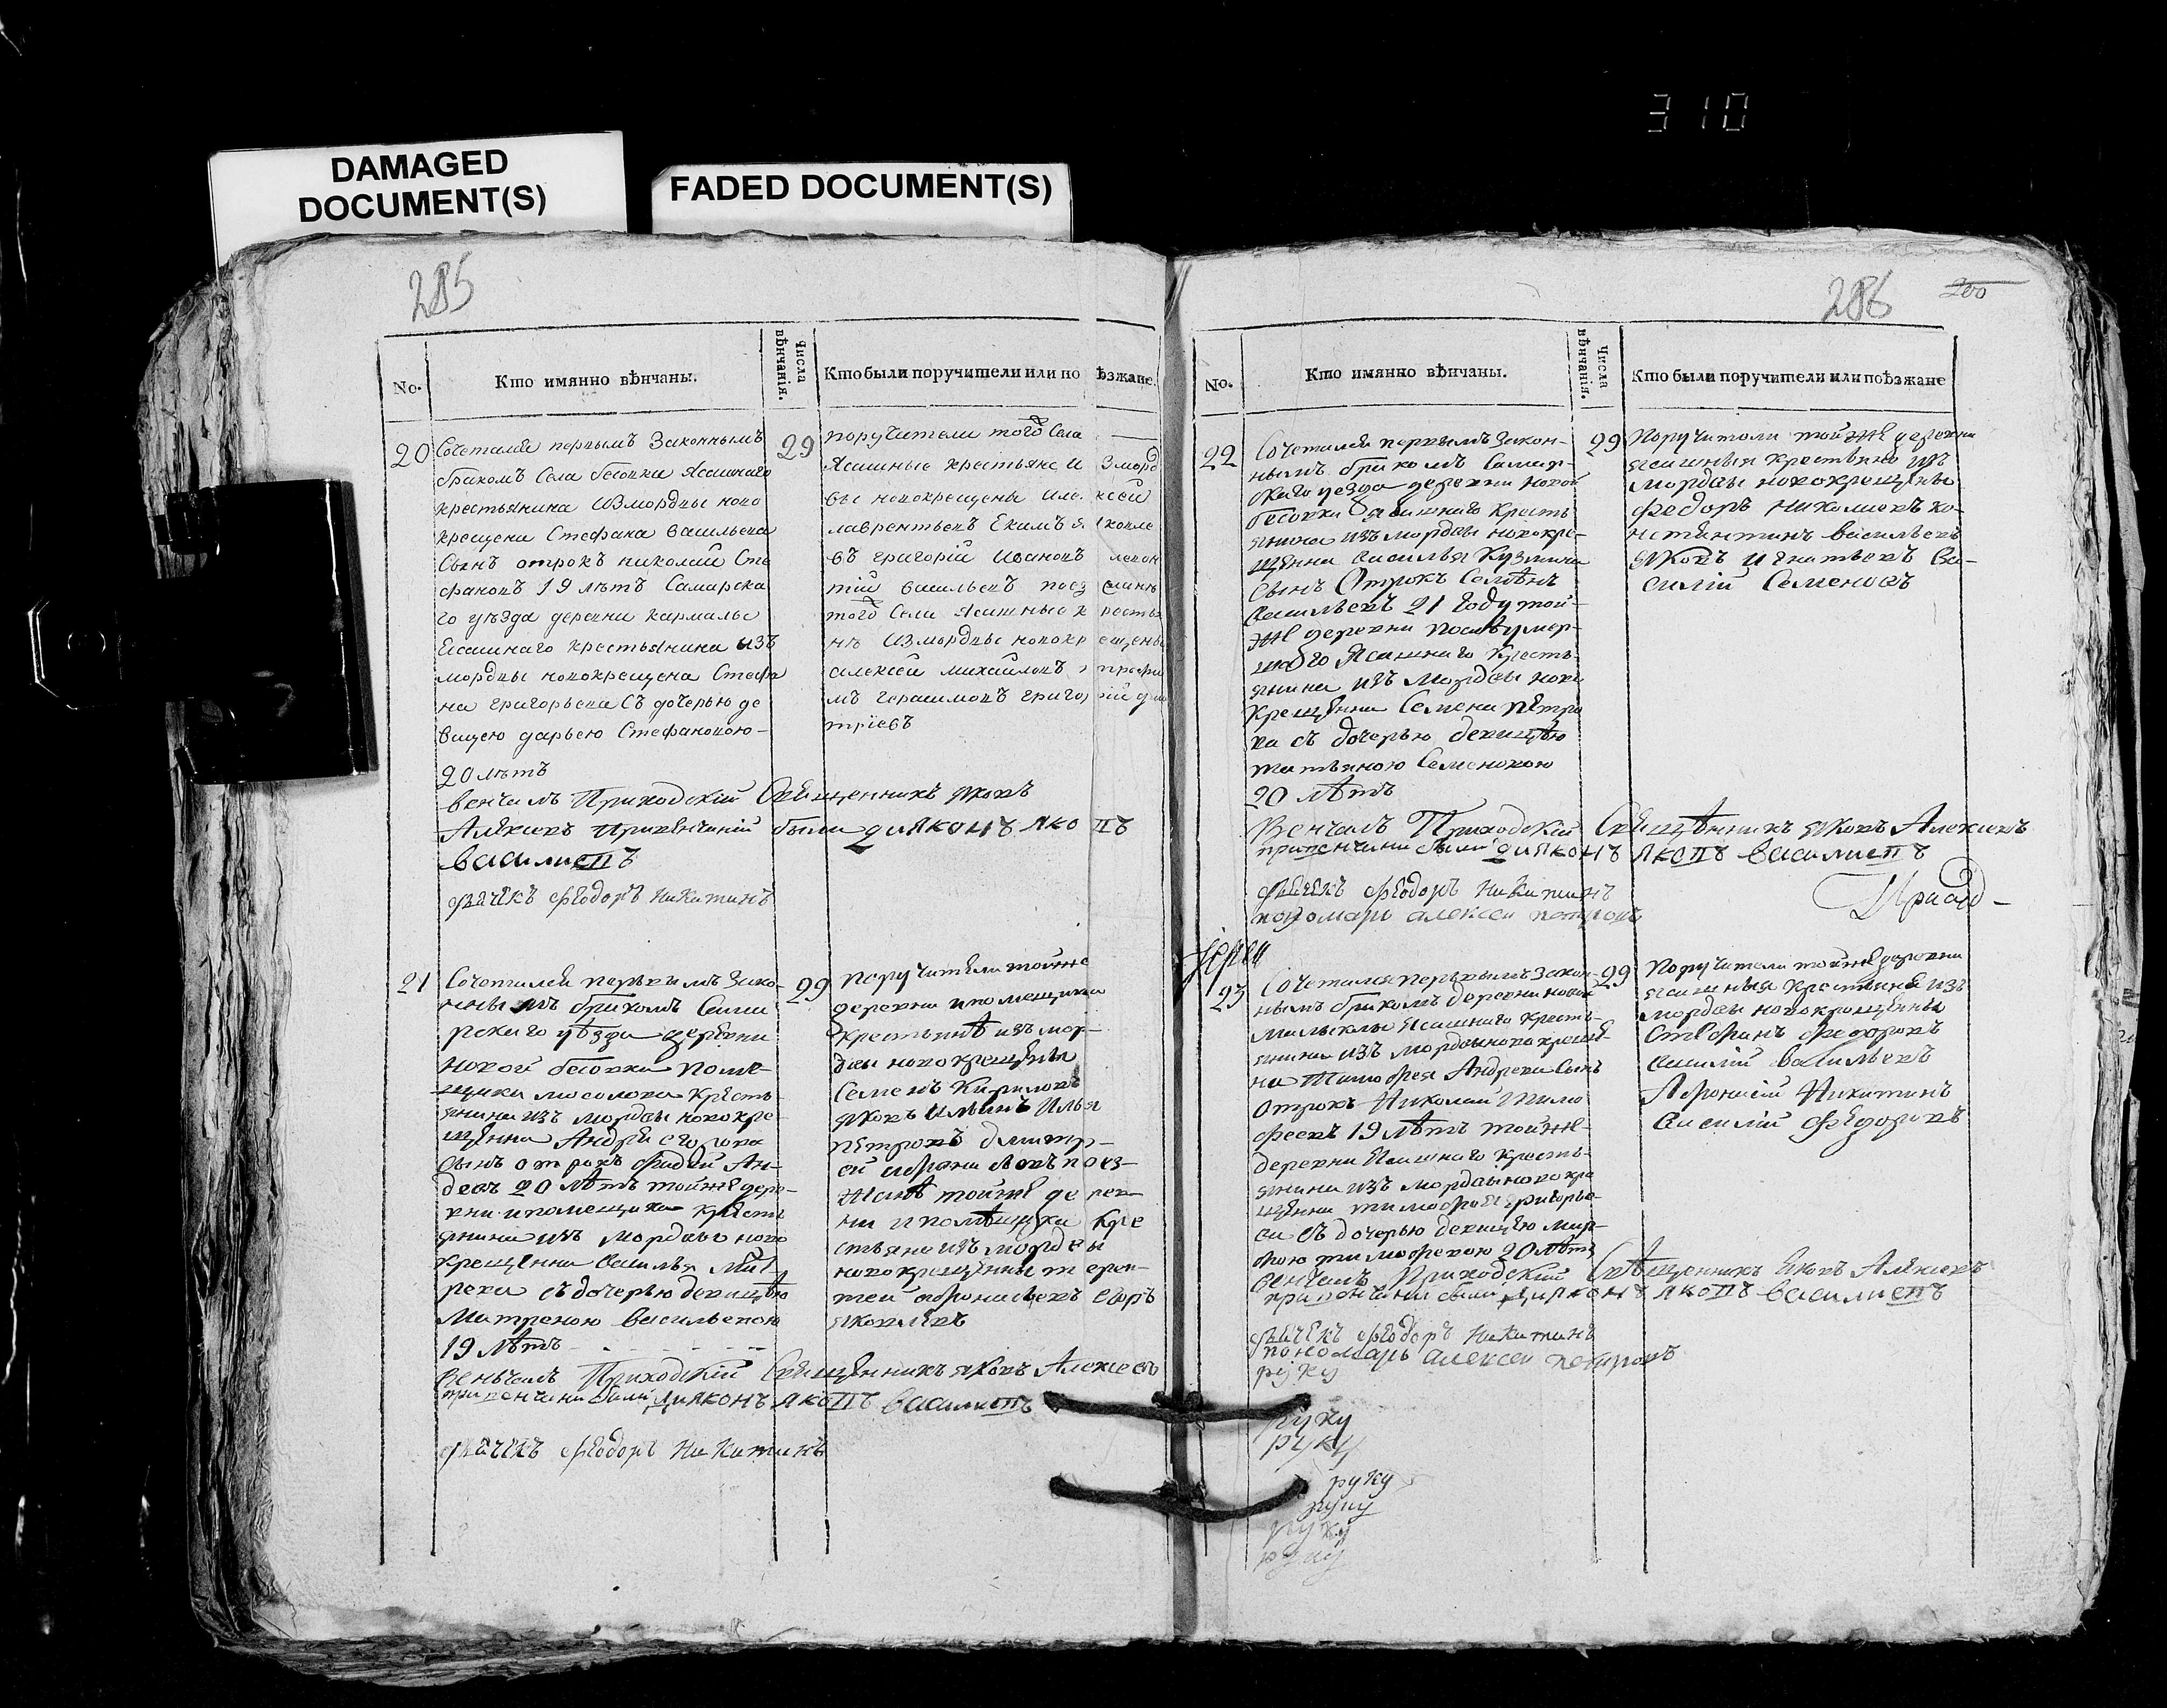 310
DAMAGED
DOCUMENT(S)
FADED DOCUMENT(S)
285
No.
Кто имянно вѣнчаны.
Числа
вѣнчанія.
Кто были поручители или по ѣзжане.
20
Сочетался первымъ Законнымъ
бракомъ Села бесовки Ясашнаго
крестьянина Измордвы ново
крещена Стефана васильева
Сынъ отрокъ николай Сте
фановъ 19 лѣтъ Самарска
го уѣзда деревни кармалы
Ясашнаго крестьянина изъ
мордвы новокрещена Стефа
на григорьева Съ дочерью де
вицею дарьею Стефановою
20 лѣтъ
29
поручители того Села
Ясашные крестьяне И Зморд
вы новокрещены Але ксей
лаврентьевъ Екимъ я ковле
въ григорій Ивановъ леон
тій васильевъ поез жаня
того Села Ясашные к рестья
нѣ Измордвы новокр ещены
алексей михайловъ
мъ герасимовъ григо рій дми
тріевъ
венчалъ Приходскій Священникъ яковъ
Алексевъ привенчаніи были дияконъ яко въ
василиевъ
дьячекъ феодоръ никитинъ
21
Сочетался первымъ Зако-
ннымъ бракомъ Сама
рскаго уѣзда деревни
новой бесовки поме-
щика мосолова кресть-
янина изъ мордвы новокре-
щенна Андрея егорова
сынъ отрокъ фадей Ан-
деевъ 20 лѣтъ тойже дере-
вни ипомещика кресть
янина изъ мордвы ново
крещенна василья
рева съ дочерью девицею
Матреною васильевою
19 лѣтъ
29
поручители тойже
деревни ипомещика
крестьянѣ изъ мор-
двы новокрещены
Семенъ Кириловъ
яковъ ильинъ Илья
петровъ дмитр-
ей афонасьевъ поез-
жанѣ тойже де рев-
ни и помѣщика кре
стьяна изъ мордвы
новокрещенны т ерен-
тей афонасьевъ егоръ
яковлевъ
Веньчалъ Приходскій Священникъ яковъ Алексеевъ
при венчани были диаконъ яковъ василиевъ
дьячекъ феодоръ никитинъ
286
200
No.
Кто имянно вѣнчаны.
Числа
вѣнчанія.
Кто были поручители или поѣзжане
22
Сочетался первымъ закон-
нымъ бракомъ Самар-
скаго уезда деревни новой
бесовки ясашнаго кресть
янина изъ мордвы новокре-
щенна василья Кузмина
Сынъ Отрокъ Семѣнъ
васильевъ 21 году той-
же деревни послѣ умер-
шаго Ясашнаго кресть-
янина изъ мордвы ново
крещенна Семена петро
ва съ дочерью девицѣю
татьяною Семеновою
20 лѣтъ
29
Поручители тойже деревни
ясашныя крестьяна изъ
мордвы новокрещены
федоръ николаевъ ко-
нстантинъ васильевъ
яковъ игнатьевъ ва-
силій Семеновъ
Венчалъ Приходскій Священникъ яковъ Алексевъ
привенчани были диаконъ яковъ василиевъ
дьячекъ феодоръ никитинъ
пономарь алексеи петровъ
23
Сочетался первымъ закон-
нымъ бракомъ деревни новой
Ясашнаго кресть-
янина изъ мордвы новокреще-
на Тимофея Андреева Сынъ
Отрокъ Николай тимо
феевъ 19 лѣтъ тойже-
деревни Ясашнаго кресть-
янина изъ мордвы новокре
щенна тимофея григорье-
ва съ дочерью девицею мар-
фою тимофеевою 20 лѣтъ
29
Поручители тойже деревни
ясашныя крестьяна изъ
мордвы новокрещены
Стефанъ федоровъ
василій васильевъ
Афонасій Никитинъ
василій федоровъ
венчалъ Приходский Священникъ Яковъ Алексевъ
при венчании были диаконъ яковъ василиевъ
дьячекъ феодоръ никитинъ
пономарь алексеи петровъ
руку
руку
руку
руку
руку
руку
руку